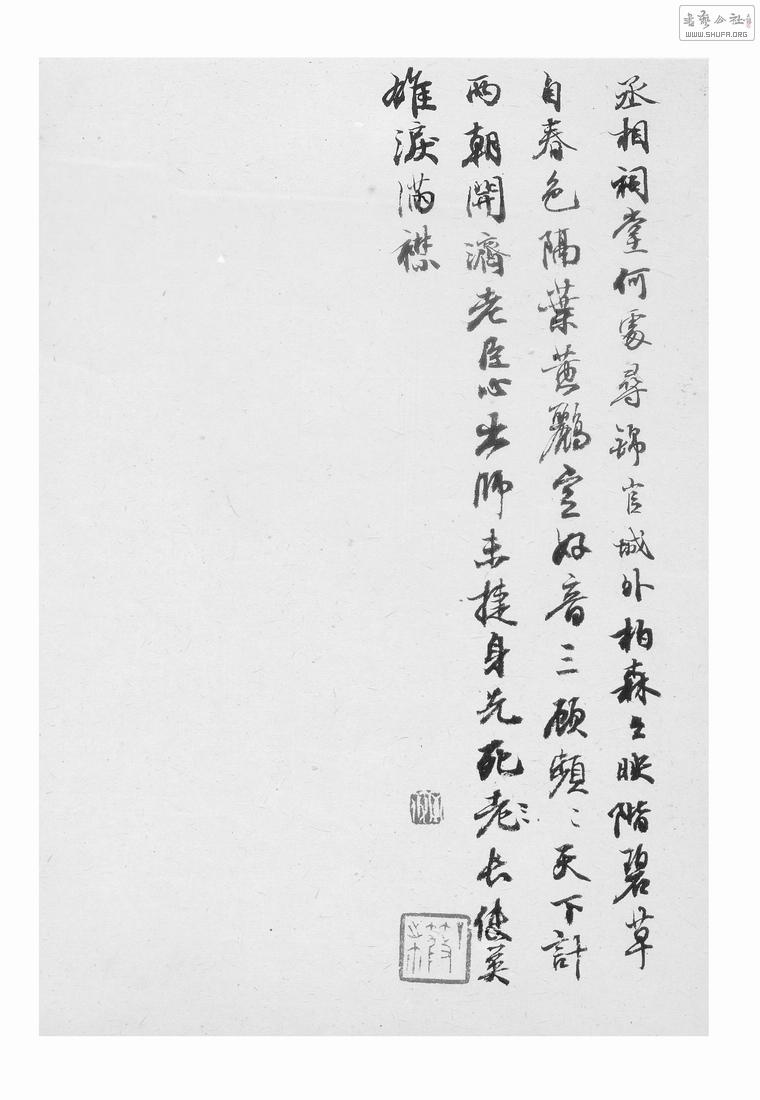 书艺公社
WWW.SHUFA.ORG
丞相祠堂何處尋錦官城外柏森々映階碧草
自春色隔葉黃鸝空好音三顧頻〻天下計
兩朝開濟老臣心出師未捷身先死老長使英
雄淚滿襟